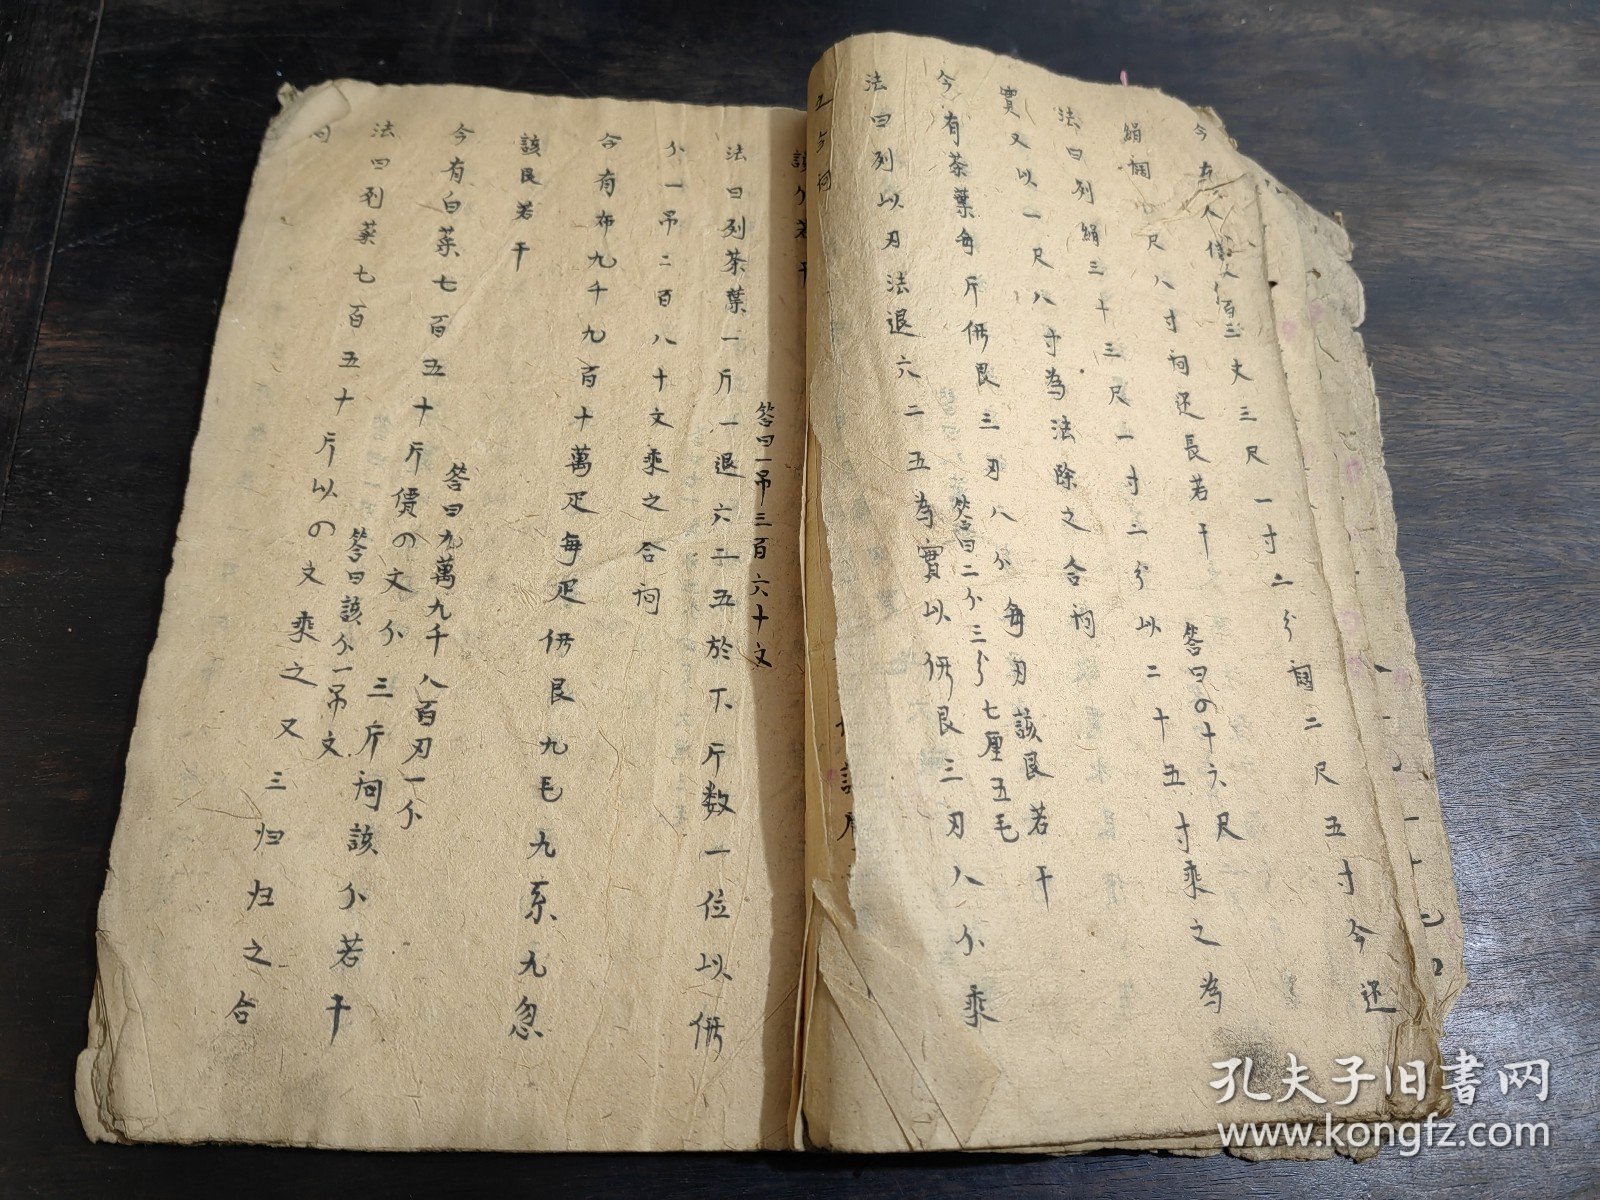 今有人借人絹三丈三尺一寸二分闊二尺五寸今还
絹闊一尺八寸问还長若干
答曰〇十六尺
法曰列絹三十三尺一寸二分以二十五寸乘之為
實又以一尺八寸為法除之合问
今有茶葉每斤価艮三刃八分每刃該艮若干
答曰二分三分七厘五毛
法曰列以刃法退六二五為實以価艮三刃八分乘
該分若干
答曰一吊三百六十文
法曰列茶葉一斤一退六二五於下斤数一位以価
分一吊二百八十文乘之合问
今有布九千九百十萬疋每疋価艮九毛九系九忽
該艮若干
答曰九萬九千八百刃一分
今有白菜七百五十斤價〇文分三斤问該分若干
答曰該分一吊文
法曰列菜七百五十斤以〇文乘之又三归归之合
问
孔夫子旧書网
www.kongfz.com